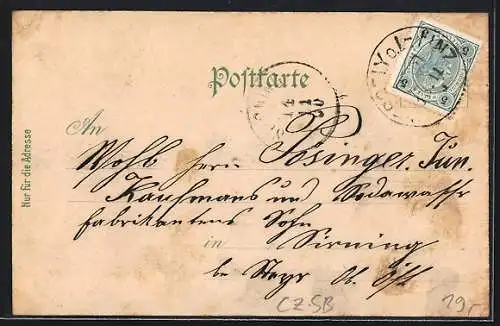 Postkarte
Nur für die Adresse
An
Wohl herrn Pösinger. Jun.
Kaufmans und Sodawasser
fabrikantens Sohn
in Sirning
bei Steyr Ob. Öst.
CZ-SB
19.-